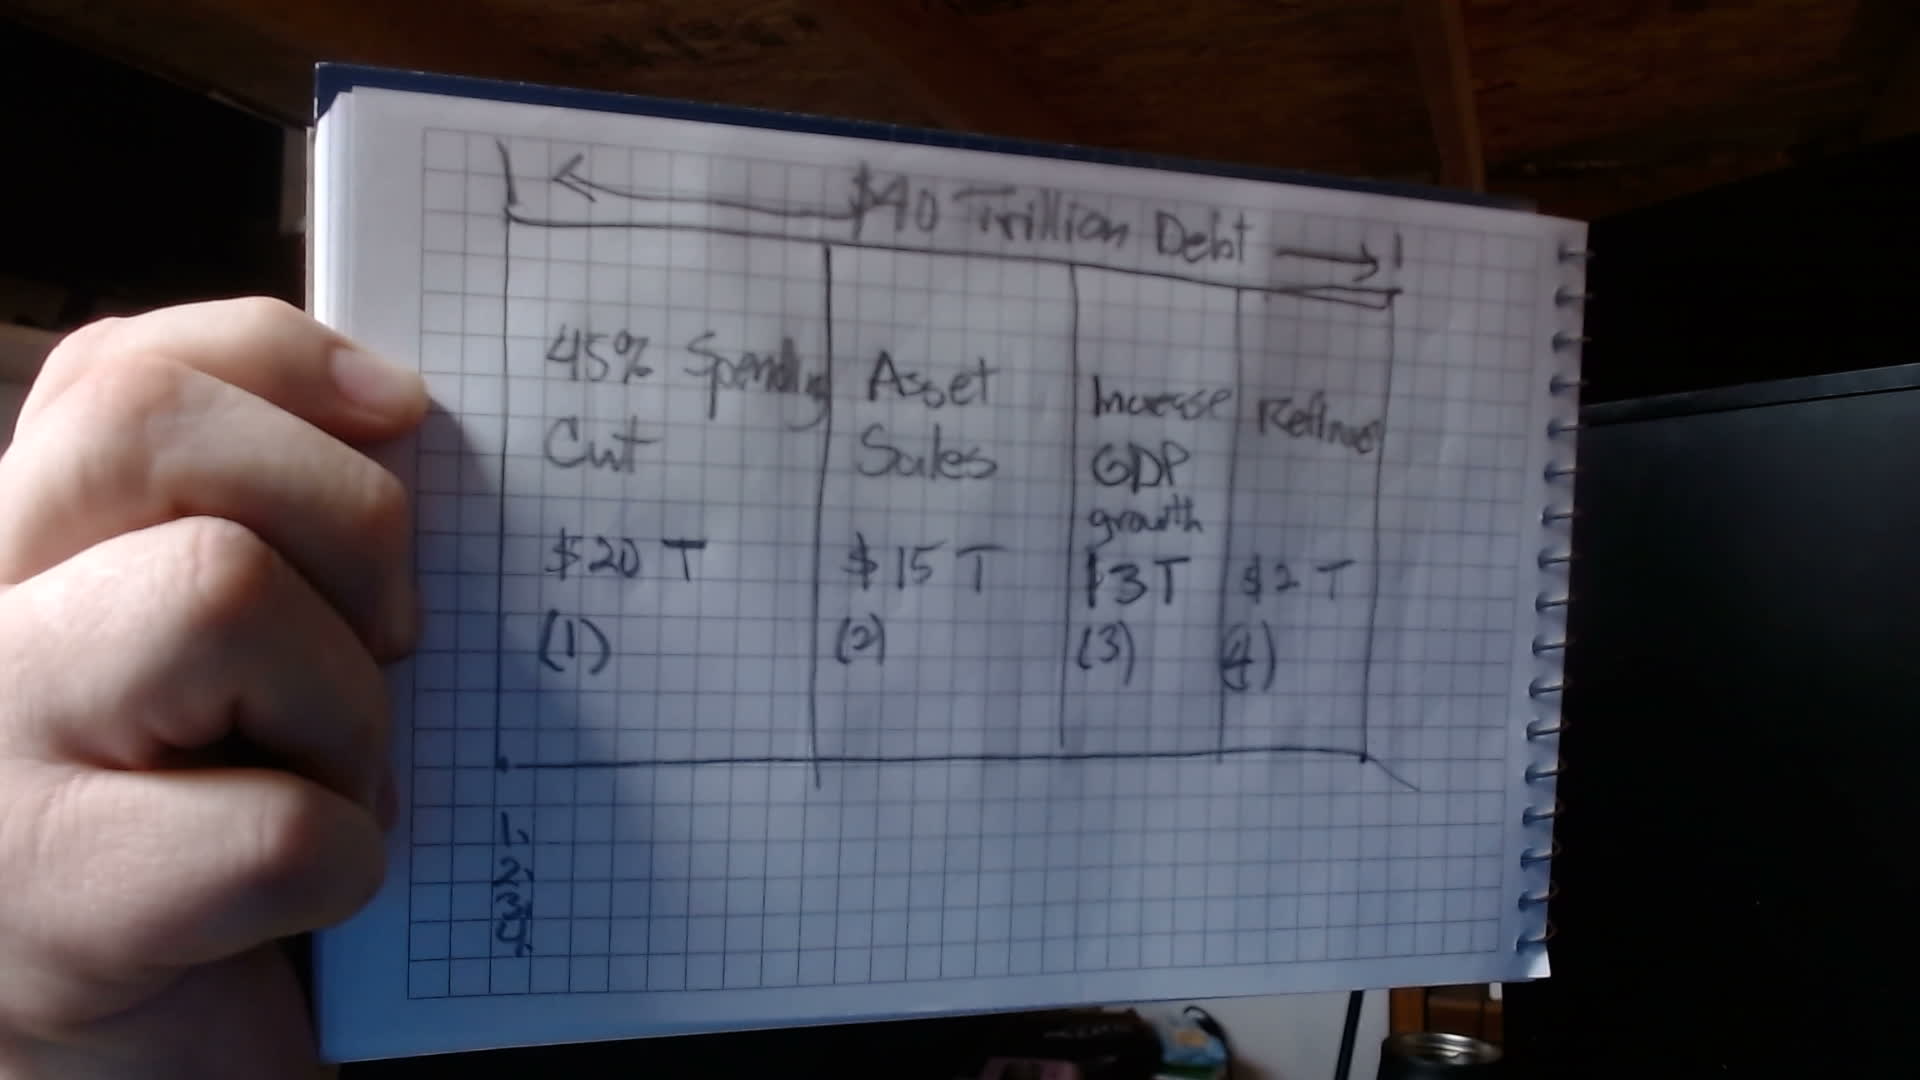 $40 Trillion Debt
45% Spending
Cut
$20 T
(1)
Asset
Sales
$15 T
(2)
Increase
GDP
growth
$3T
(3)
Refinance
$2 T
(4)
1.
2.
3.
4.